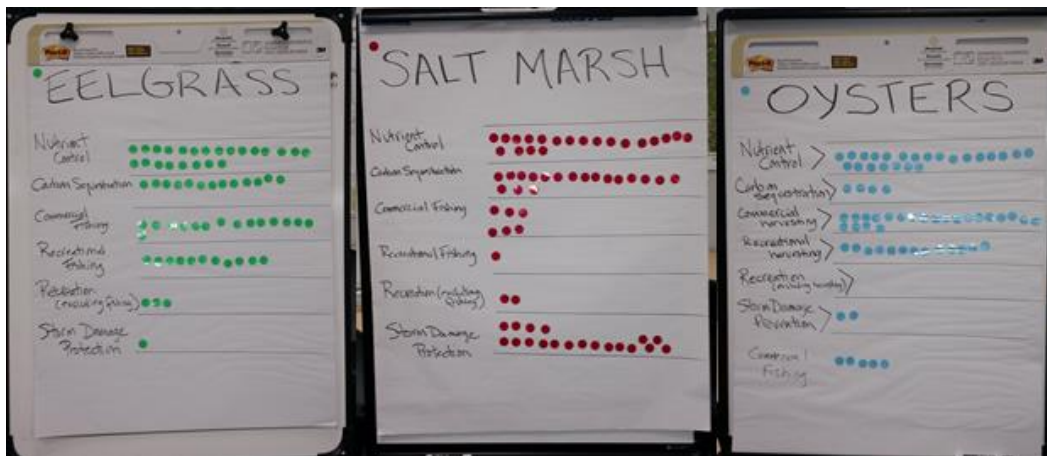 Post-it
3M
EELGRASS
Nutrient
Control
Carbon Sequestration
Commercial
Fishing
Recreational
Fishing
Recreation
(excluding fishing)
Storm Damage
Protection
SALT MARSH
Nutrient
Control
Carbon Sequestration
Commercial Fishing
Recreational Fishing
Recreation (excluding
fishing)
Storm Damage
Protection
Post-it
3M
OYSTERS
Nutrient
Control
Carbon
Sequestration
Commercial
harvesting
Recreational
harvesting
Recreation
(excluding harvesting)
Storm Damage
Prevention
Commercial
Fishing